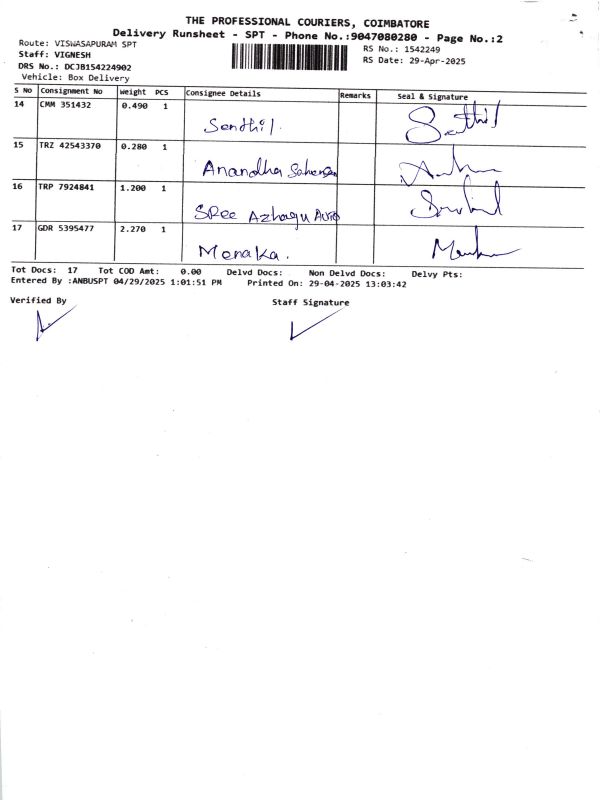 THE PROFESSIONAL COURIERS, COIMBATORE
Delivery Runsheet - SPT - Phone No.:9047080280 - Page No.:2
Route: VISWASAPURAM SPT
Staff: VIGNESH
DRS No.: DCJB154224902
Vehicle: Box Delivery
RS No.: 1542249
RS Date: 29-Apr-2025
S No Consignment No Weight PCS Consignee Details Remarks Seal & Signature
14 CMM 351432 0.490 1 Senthil. Senthil
15 TRZ 42543370 0.280 1 Anandha
16 TRP 7924841 1.200 1 SRee Azhagu Auto
17 GDR 5395477 2.270 1 Menaka.
Tot Docs: 17 Tot COD Amt: 0.00 Delvd Docs: Non Delvd Docs: Delvy Pts:
Entered By :ANBUSPT 04/29/2025 1:01:51 PM Printed On: 29-04-2025 13:03:42
Verified By Staff Signature